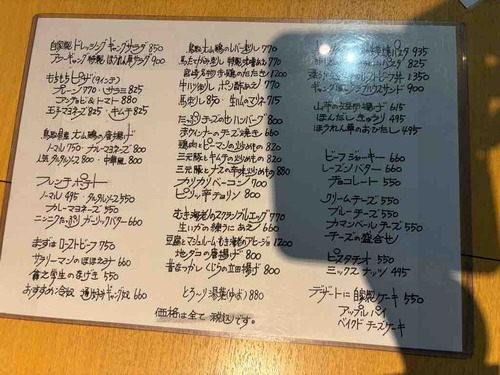 自家製 ドレッシング ギャングサラダ 850
アラーギャング特製 ほうれん草サラダ 900
もちもちピザ(9インチ)
プレーン 770 ・ サラミ 825
アンチョビ&トマト 880
玉子マヨネーズ 825 ・ キムチ 825
鳥取県産 大山鶏の唐揚げ
ノーマル 750 カレーマヨネーズ 800
人気タルタルソース 800 ・ 中華風 800
フレンチポテト
ノーマル 495 タルタルソース 550
カレーマヨネーズ 550
ニンニクたっぷり ガーリックバター 660
まずは ローストビーフ 950
サラリーマンのほほえみ 660
貧乏学生のなげき 550
おすすめ冷奴 660
鳥取大山鶏のレバー刺し 770
馬たてがみ刺し 770
宮崎名物 赤鶏のたたき 1200
牛川刺し ポン酢あえ 770
馬刺し 850 ・ 生ハムのマリネ 715
たっぷりチーズのせ ハンバーグ 800
赤ウィンナーのチーズ焼き 660
鶏肉とピーマンの炒めもの 820
三元豚とキムチの炒めもの 820
三元豚とナスの辛味炒めもの 820
カリカリベーコン 700
ピリッ辛チョリソ 800
むき海老のスクランブルエッグ 770
生いかの練りうにあえ 660
豆腐とマッシュルームむき海老のアヒージョ 1200
地ダコの唐揚げ 800
昔なつかし くじらの立田揚げ 800
とろ〜り 湯葉(ゆば) 880
935
825
1350
900
山芋の短冊揚げ 615
ほんだし きゅうり 495
ほうれん草のおひたし 495
ビーフジャーキー 660
レーズンバター 660
チョコレート 550
クリームチーズ 550
ブルーチーズ 550
カマンベールチーズ 550
チーズの盛合せ
ピスタチオ 550
ミックスナッツ 495
デザートに 自家製ケーキ 550
アップルパイ
ベイクドチーズケーキ
価格は全て 税込りです。